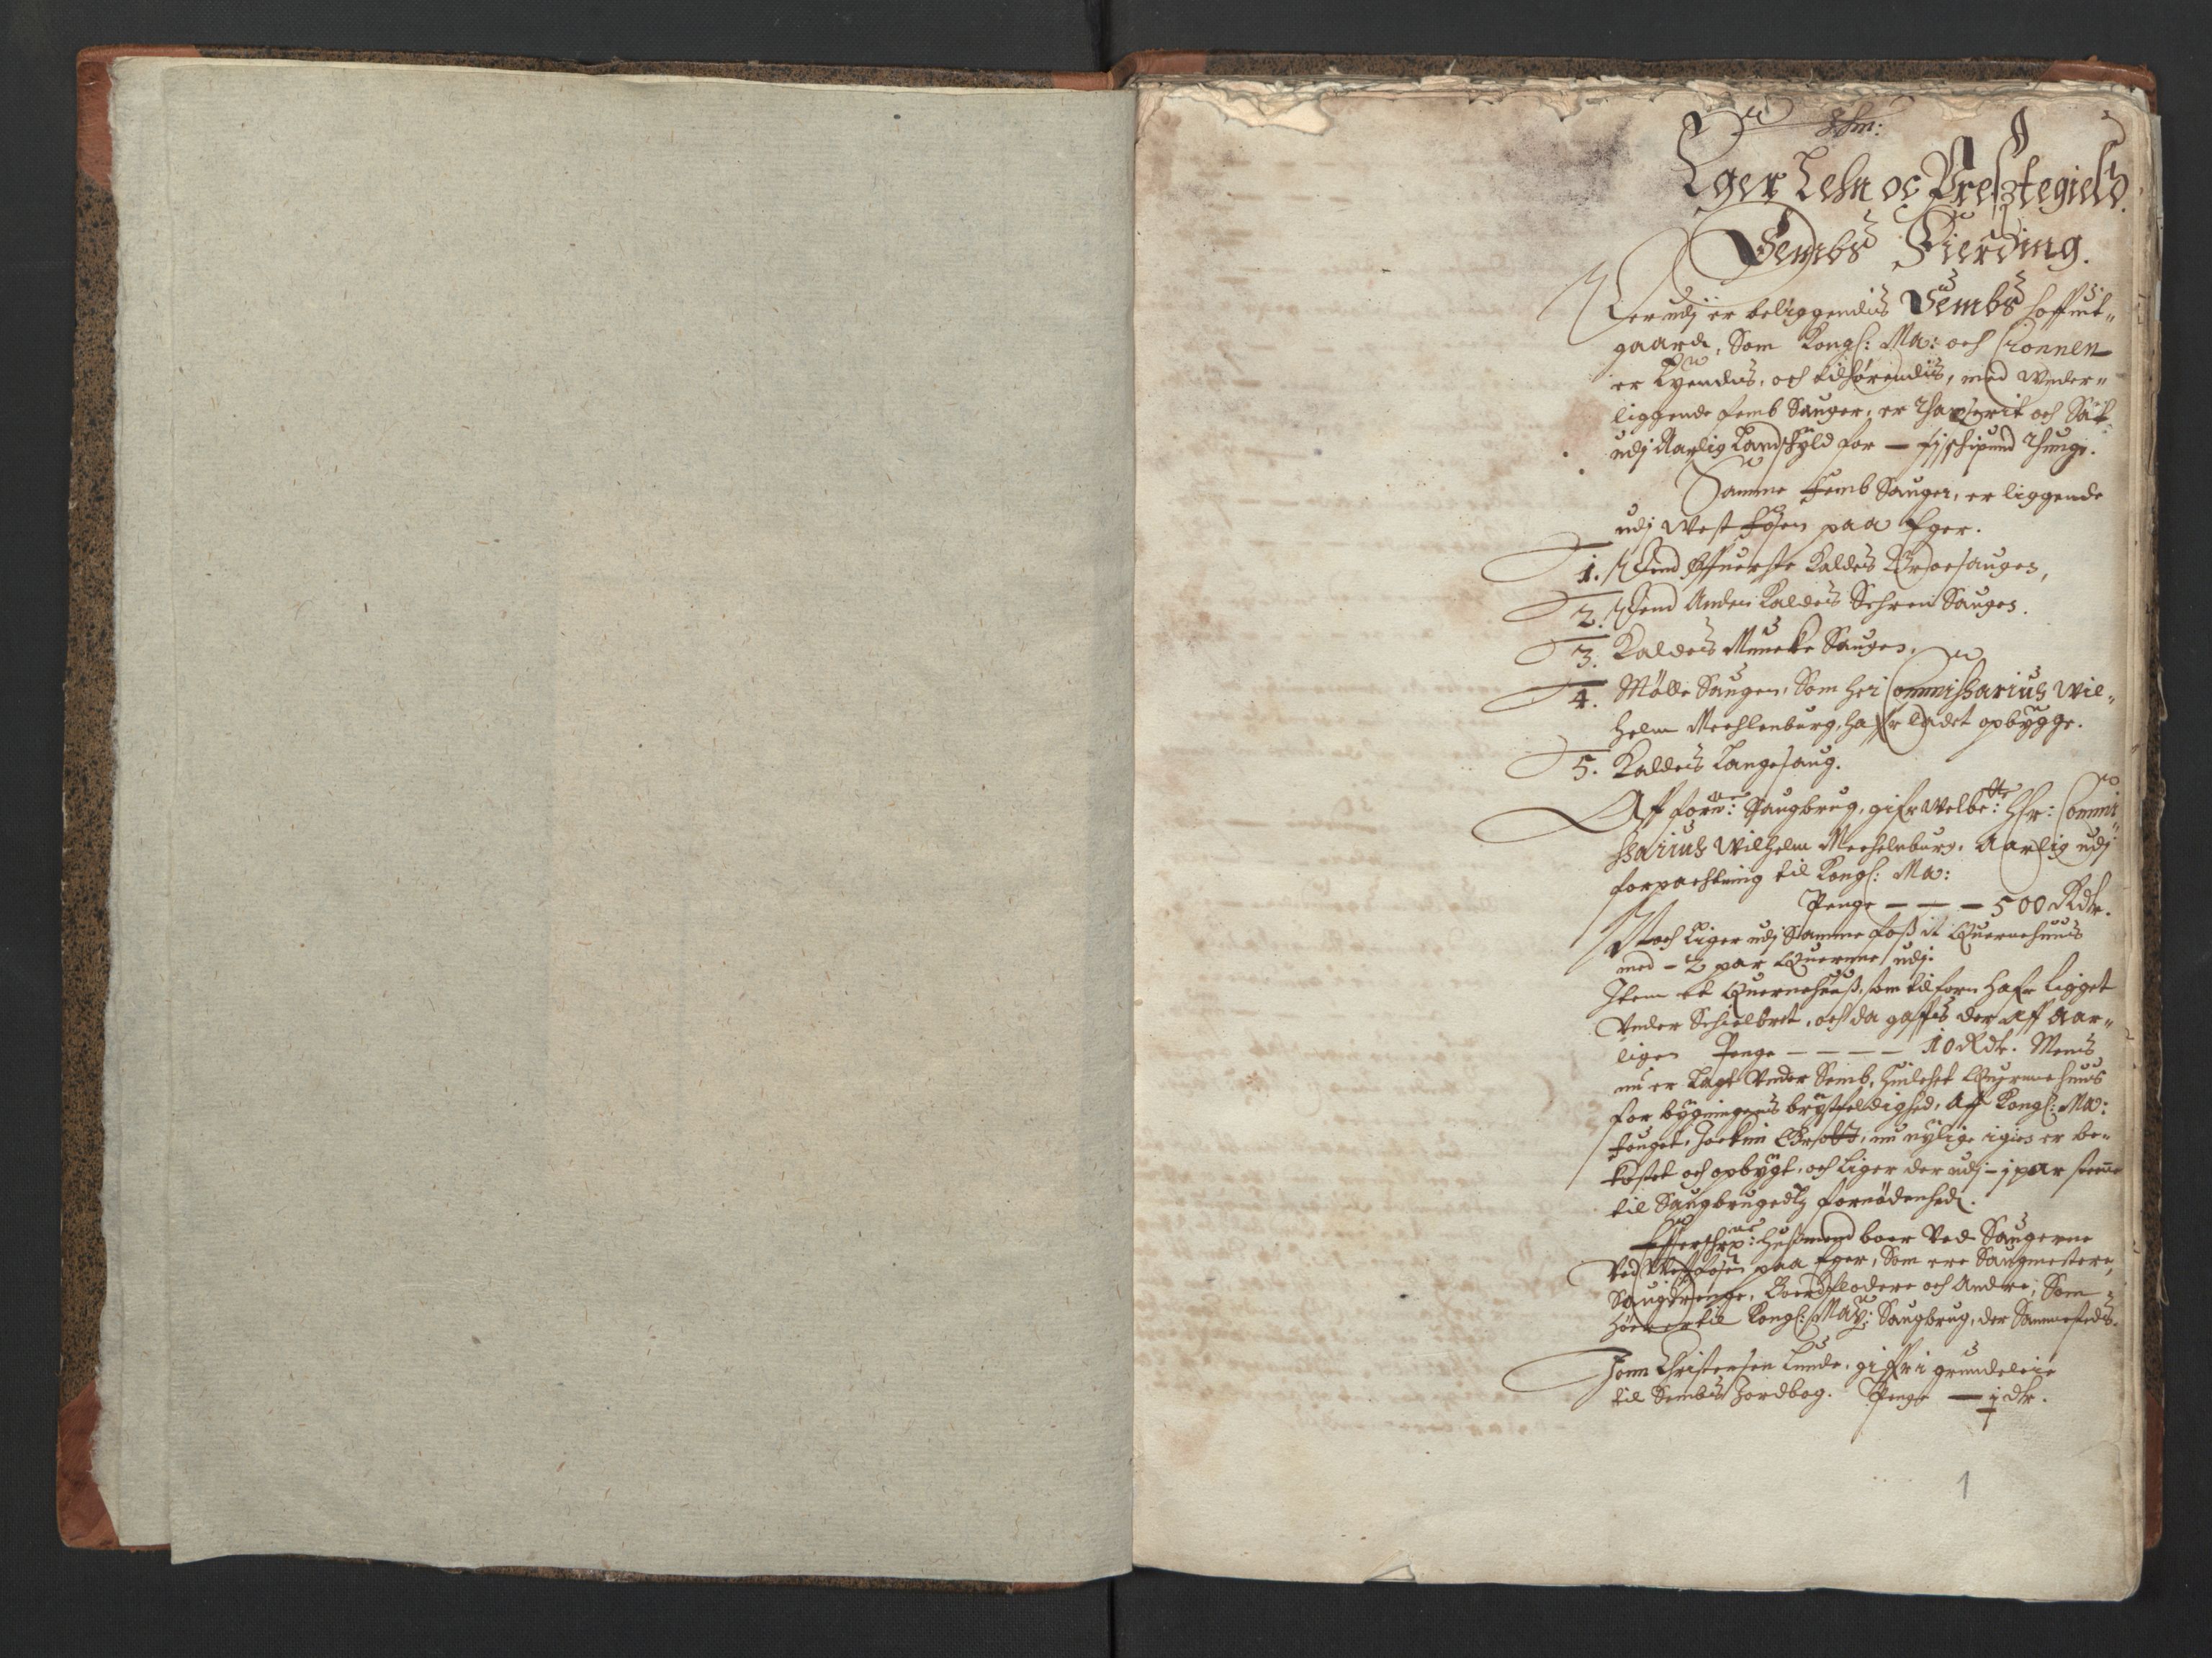 Eger Lehn oc Presztegield.
Sembs Fierding.
Derudj er beliggendis Sembs hoffuit„
gaard, Som Kongl: Ma: och Cronnen
er Eyendis, och tilhørendis, med Under„
liggende femb Sauger, er Thaxerit och Sat
udj Aarlig Landschyld for — Schipund Thunge.
Samme Femb Sauger, er liggende
udj West Fosen paa Eger.
1. Dend Øffuerste Kaldes Broesaugen,
2. Dend Anden Kaldes Schren Saugen.
3. Kaldes Muncke Saugen.
4. Mølle Saugen, Som her Commissarius Wil„
helm Mechlenburg, hafr ladet opbygge.
5. Kaldes Langesaug.
Aff forne: Saugbrug, gifr Welbe: Hr: Commi„
ssarius Wilhelm Mechlnburg, Aarlig udj
forpachtning til Kongl: Ma:
Penge — — — 500 Rdr.
Noch Liger udj Samme foss it Querne huus
med – 2 par Querne udj.
Item et Quernehuuss, som tilforn hafr ligget
Under Schielbret, och da gaffis der Aff Aar„
ligen Penge — — — — 10 Rdr. Mens
nu er Lagt Under Semb, huilchet Querne huus
for bygningens brystfeldighed, Aff Kongl: Ma:
fouget, Jockim Brott, nu nylige igien er be„
kostet och opbygt, och Liger der udj – 1 par steene
til Saugbrugedtz fornødenhed.
Effterschrne: Hussmend boer Ved Saugerne
Ved Westfosen paa Eger, Som ere Saugmestere,
Saugdrenge, Bordflodere och Andre, Som
hører til Kongl: May: Saugbrug, der Sammesteds.
Jonn Christensen Lunde, gifr i grundeleie
til Sembs Jordbog. Penge — 1 dr.
1